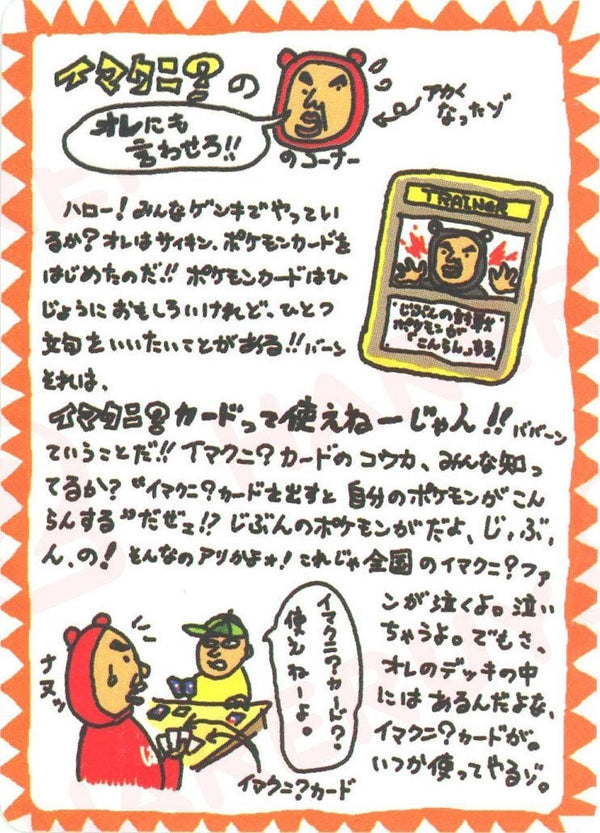 イマクニ?の
オレにも
言わせろ!!
のコーナー
アカく
なったゾ
ハロー!みんなゲンキでやってい
るか?オレはサイキン、ポケモンカードを
はじめたのだ!!ポケモンカードはひ
じょうにおもしろいけれど、ひとつ
文句をいいたいことがある!!バーン
それは、
TRAINER
じぶんの
ポケモンが
「こんらん」する。
イマクニ?カードって使えねーじゃん!!ババーン
ていうことだ!!イマクニ?カードのコウカ、みんな知っ
てるか?"イマクニ?カードを出すと自分のポケモンがこん
らんする"だぜェ!?じぶんのポケモンがだよ、じ、ぶ、
ん、の!そんなのアリかよォ!これじゃ全国のイマクニ?ファ
ンが泣くよ。泣い
ちゃうよ。でもさ、
オレのデッキの中
にはあるんだよな、
イマクニ?カードが。
いつか使ってやるゾ。
イマクニ?カード?
使えねーよ。
ナヌッ
イマクニ?カード